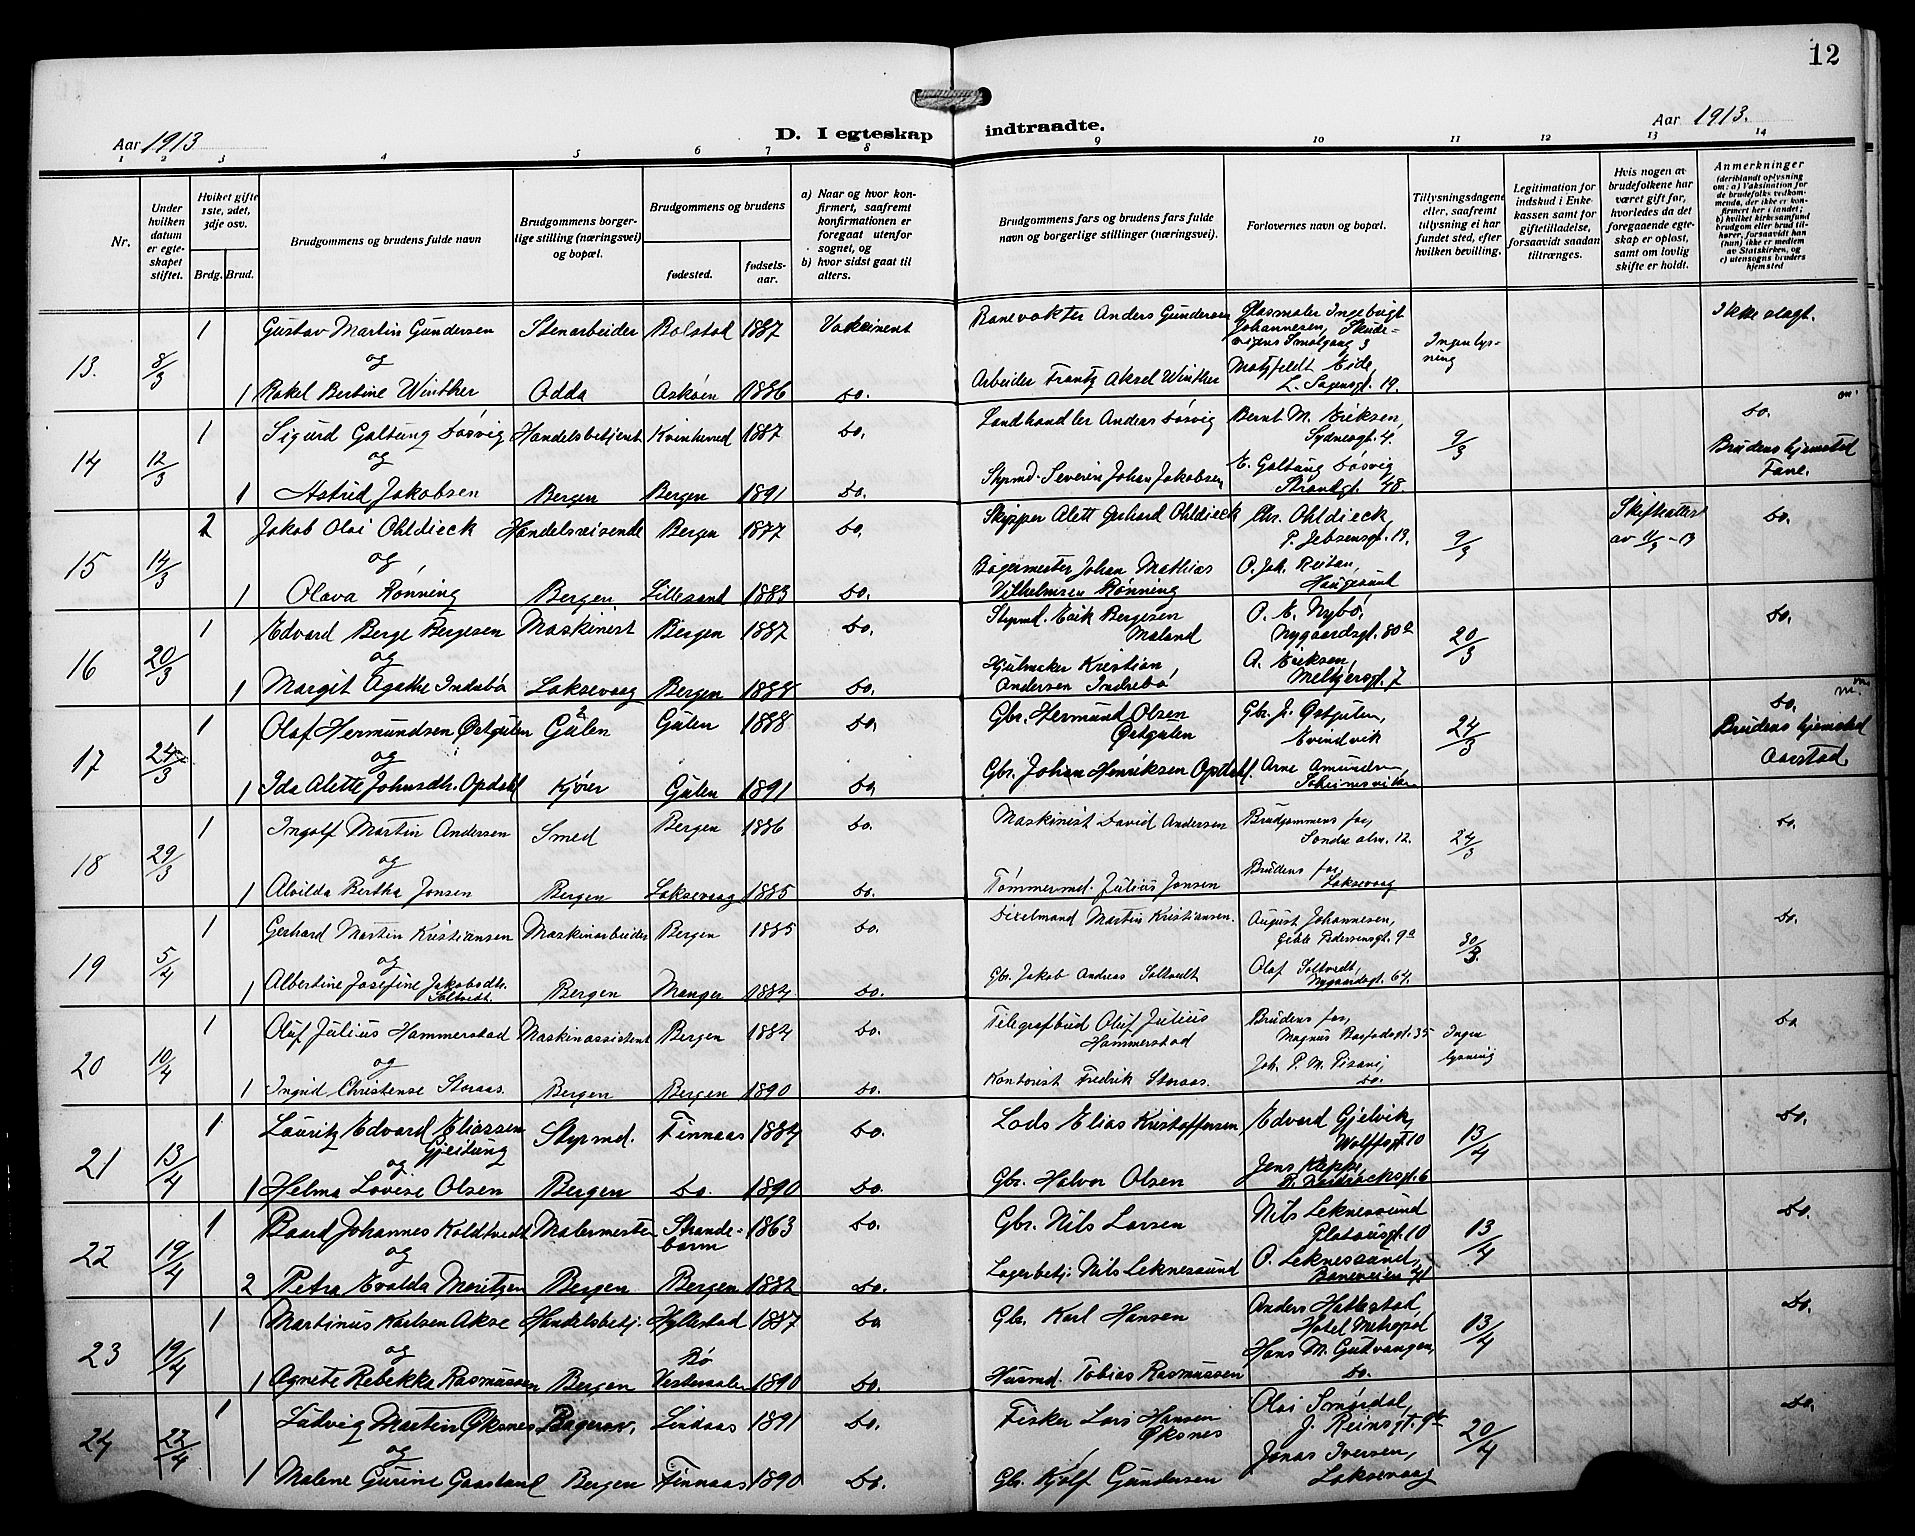 12
Aar 1913
D. I egteskap indtraadte.
Aar 1913.
1 2 3 4 5 6 7 8 9 10 11 12 13 14
Nr.
Under hvilken datum er egteskapet stiftet.
Hvilket gifte 1ste, 2det, 3dje osv.
Brdg. Brud.
Brudgommens og brudens fulde navn
Brudgommens borgerlige stilling (næringsvei) og bopæl.
Brudgommens og brudens
fødested.
fødselsaar.
a) Naar og hvor konfirmert, saafremt konfirmationen er foregaat utenfor sognet, og
b) hvor sidst gaat til alters.
Brudgommens fars og brudens fars fulde navn og borgerlige stillinger (næringsvei).
Forlovernes navn og bopæl.
Tillysningsdagene eller, saafremt tillysning ei har fundet sted, efter hvilken bevilling.
Legitimation for indskud i Enkekassen samt for giftetilladelse, forsaavidt saadan tiltrænges.
Hvis nogen av brudefolkene har været gift før, hvorledes da det foregaaende egteskap er opløst, samt om lovlig skifte er holdt.
Anmerkninger (deriblandt oplysning om: a) Vaksination for de brudefolks vedkommende, der ikke er konfirmert her i landet; b) hvilket kirkesamfund brudgom eller brud tilhører, forsaavidt han (hun) ikke er medlem av Statskirken, og c) utensogns bruders hjemsted
13. 8/3 1 Gustav Martin Gundersen Stenarbeider Bolstad 1887 Vaksinert Banevokter Anders Gundersen Glasmaler Ingebrigt Johannesen, Skudevigens Smalgang 3 Ingen lysning Ikke slagt.
og
1 Rakel Bertine Winther Odda Askøen 1886 Do. Arbeider Frantz Aksel Winther Motzfeldt Eide, L. Sagensgt. 19.
14 12/3 1 Sigurd Galtung Døsvig Handelsbetjent Kvinherred 1887 Do. Landhandler Andreas Døsvig Bernt M. Eriksen, Sydnesgt. 4. 9/3 Do. Brudens hjemsted Fane.
og
1 Astrid Jakobsen Bergen Bergen 1891 Do. Styrmd. Severin Johan Jakobsen E. Galtung Døsvig Strandgt. 48.
15 14/3 2 Jakob Olai Ohldieck Handelsreisende Bergen 1877 Do. Skipper Alett Gerhard Ohldieck Chr. Ohldieck, P. Jebsensgt. 13. 9/3 Skifteattest av 11/3-13 Do.
og
1 Olava Rønning Bergen Lillesand 1883 Do. Bagermester Johan Mathias Vilhelmsen Rønning O. Joh. Reitan, Haugesund
16 20/3 1 Edvard Berge Bergesen Maskinist Bergen 1887 Do. Styrmd. Erik Bergesen Maland O. E. Nybø, Nygaardsgt. 80a 20/3 Do.
og
1 Margit Agathe Indrebø Laksevaag Bergen 1888 Do. Hjulmeker Kristian Andersen Indrebø A. Eriksen, Meltzersgt. 7
17 24/3 1 Olaf Hermundsen Østgulen Gulen Gulen 1888 Do. Gbr. Hermund Olsen Østgulen Gbr. J. Østgulen, Evindvik 24/3 Do. Brudens hjemsted Aarstad.
og
1 Ida Alette Johnsdtr. Opdahl Kjører Gulen 1891 Do Gbr. Johan Henriksen Opdahl. Arne Amundsen, Solheimsviken
18 29/3 1 Ingolf Martin Andersen Smed Bergen 1886 Do. Maskinist David Andersen Brudgommens far, Søndre alm. 12. 24/3 Do.
og
1 Alvilda Bertha Jonsen Bergen Laksevaag 1885 Do. Tømmermd. Julius Jonsen Brudens far, Laksevaag
19 5/4 1 Gerhard Martin Kristiansen Maskinarbeider Bergen 1885 Do. Dixelmand Martin Kristiansen. August Johannesen, Geble Pedersensgt. 9a 30/3. Do.
og
1 Albertine Josefine Jakobsdtr. Soltvedt. Bergen Manger 1884 Do. Gbr. Jakob Andreas Soltvedt Olaf Soltvedt, Nygaardsgt. 64.
20 10/4 1 Oluf Julius Hammerstad Maskinassistent Bergen 1884 Do. Telegrafbud Oluf Julius Hammerstad Brudens far, Magnus Barfodsgt. 35 Ingen lysning Do
og
1 Ingrid Christense Storaas. Bergen Bergen 1890 Do. Kontorist Fredrik Storaas. Joh. P. M. Pisani, Do.
21 13/4 1 Lauritz Edvard Eliassen Gjeitung Styrmd. Finnaas 1884 Do. Lods Elias Kristoffersen, Edvard Gjelvik, Wolffsgt. 10 13/4 Do.
og
1 Helma Lovise Olsen Bergen Do. 1890 Do. Gbr. Halvor Olsen Jens
22 19/4 1 Baard Johannes Koldtvedt Malermester Strandebarm 1863 Do. Gbr. Nils Larsen Nils Leknessund Platousgt. 10 13/4 Do.
og
2 Petra Evalda Moritzen Bergen Bergen 1882 Do. Lagerbetj. Nils Leknessund O. Leknessund, Baneveien 41
23 19/4 1 Martinus Karlsen Akse Handelsbetj. Hyllestad 1887 Do Gbr. Karl Hansen Anders Hatlestad, Hotel Metropol 13/4 Do.
og
1 Agnete Rebekka Rasmussen Bergen Bø Vesteraalen 1890 Do. Husmd. Tobias Rasmussen Hans M. Gudvangen, Do.
24 22/4 1 Ludvig Martin Øksnes Bagersv. Lindaas 1891 Do. Fisker Lars Hansen Øksnes Olai Smørdal, J. Reinsgt. 9a 20/4 Do.
og
1 Malene Gurine Gaasland Bergen Finnaas 1890 Do. Gbr. Kjølf Gundersen Jonas Iversen, Laksevaag